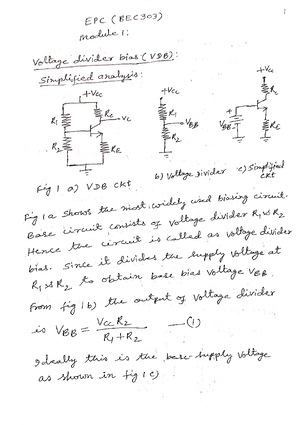 EPC (BEC303)
module 1:
Voltage divider bias (VDB):
Simplified analysis:
+Vcc
+Vcc
+Vcc
R1
Rc
Vc
R2
RE
R1
VBB
R2
Rc
VBB
RE
Fig 1 a) VDB ckt
b) Voltage divider
c) Simplified
ckt
Fig 1a shows the most widely used biasing circuit.
Base circuit consists of voltage divider R1 & R2
Hence the circuit is called as voltage divider
bias. Since it divides the supply voltage at
R1 & R2 to obtain base bias voltage VBB.
From fig 1b) the output of voltage divider
is VBB = Vcc R2 / R1 + R2 —(1)
Ideally this is the base-supply voltage
as shown in fig 1c)